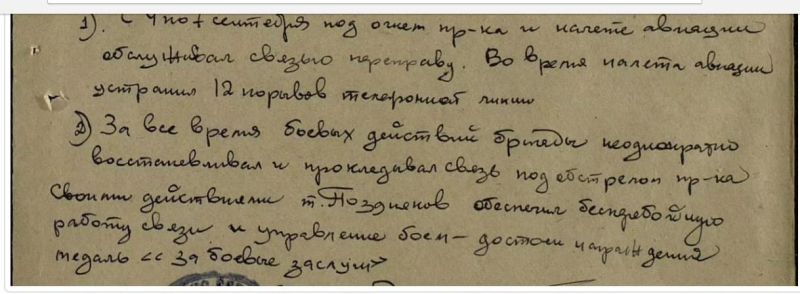 1). С 4 по 7 сентебря под огнем пр-ка и налете авиации
обслуживал связью переправу. Во время налета авиации
устранил 12 порывов телефонной линии
2) За все время боевых действий бригады неоднократно
восстанавливал и прокладывал связь под обстрелом пр-ка
Своими действиями т. Поздненов обеспечил бесперебойную
работу связи и управление боем – достоин награждения
медаль << За боевые заслуги>